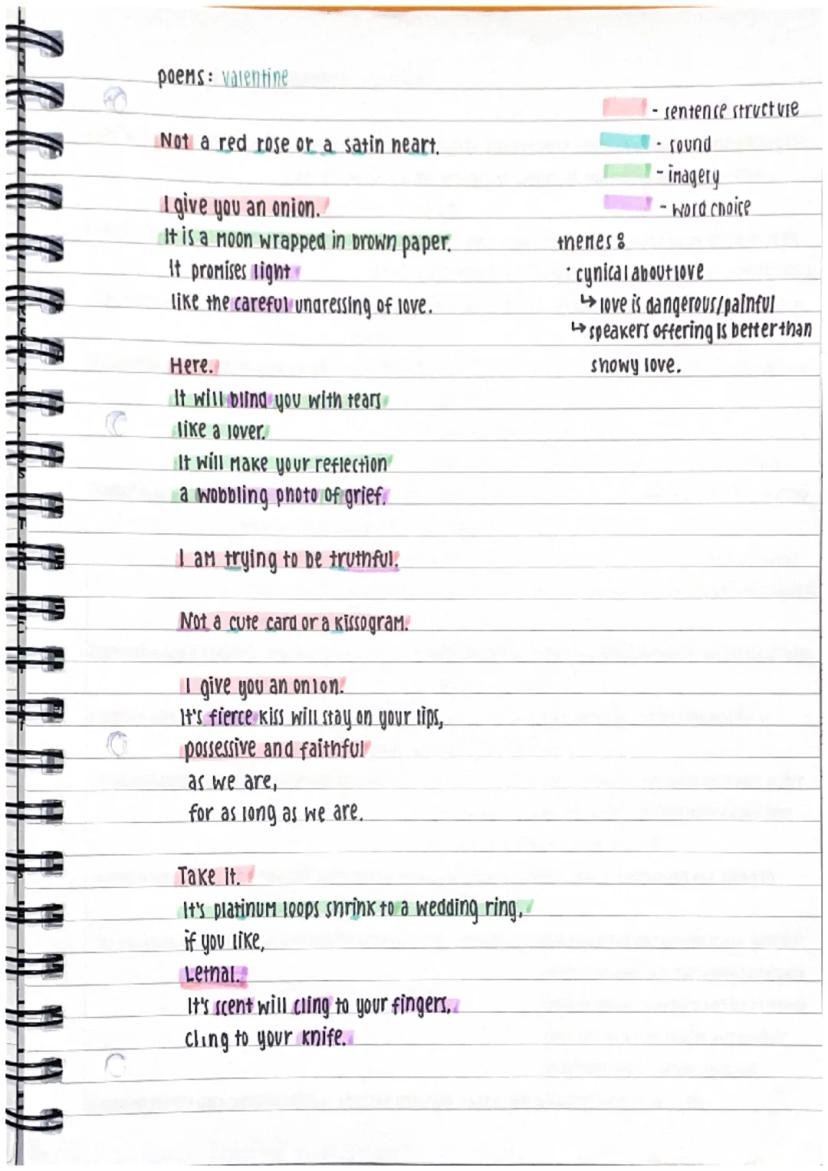 poems: valentine
- sentence structure
Not a red rose or a satin heart.
- sound
- imagery
I give you an onion.
- word choice
It is a moon wrapped in brown paper.
themes:
It promises light
· cynical about love
like the careful undressing of love.
↳ love is dangerous/painful
↳ speakers offering is better than
showy love.
Here.
It will blind you with tears
like a lover.
It will make your reflection
a wobbling photo of grief.
I am trying to be truthful.
Not a cute card or a kissogram.
I give you an onion.
It's fierce kiss will stay on your lips,
possessive and faithful
as we are,
for as long as we are.
Take it.
It's platinum loops shrink to a wedding ring,
if you like,
Lethal.
It's scent will cling to your fingers,
cling to your knife.